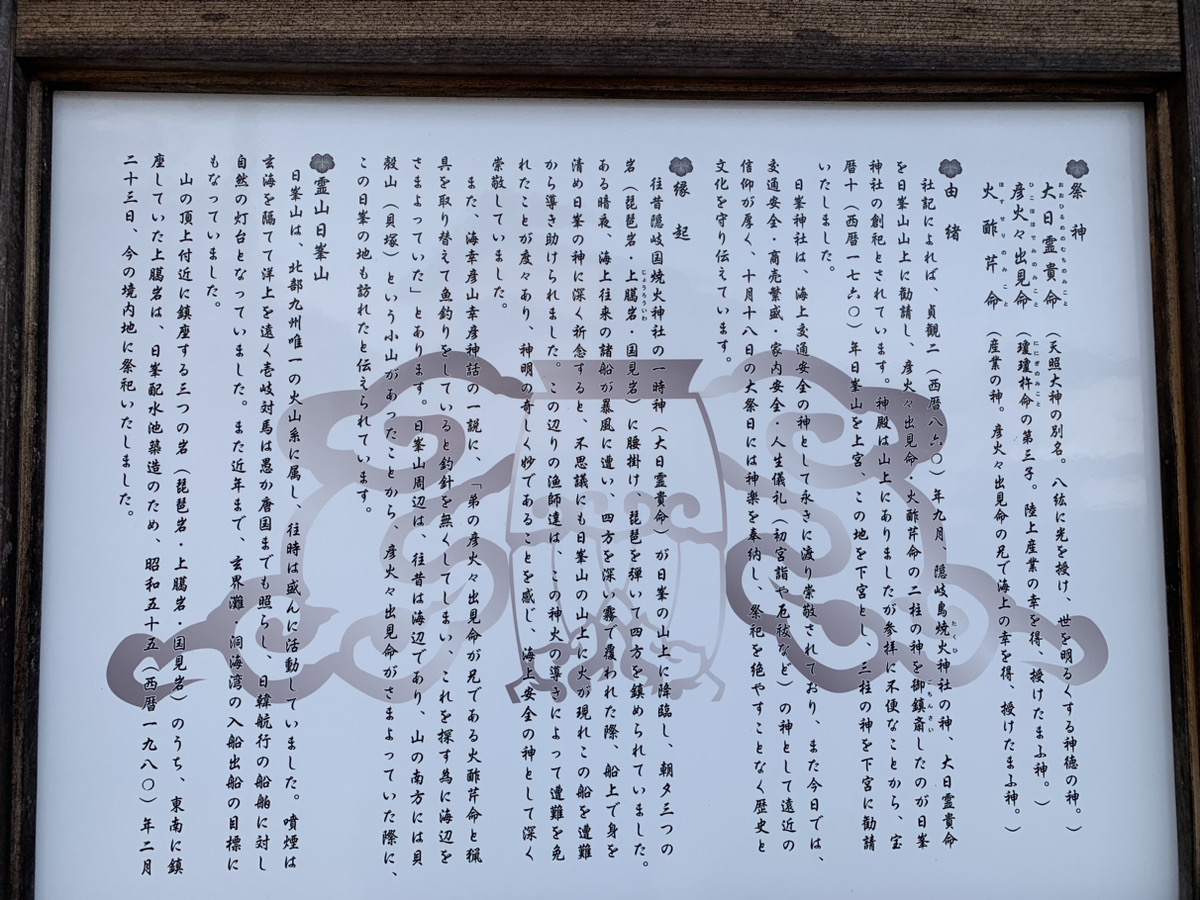 祭神
大日霊貴命 (天照大神の別名。八紘に光を授け、世を明るくする神徳の神。)
おおひるめのむちのみこと
彦火々出見命 (瓊瓊杵命の第三子。陸上産業の幸を得、授けたまふ神。)
ひこほほでみのみこと ににぎのみこと
火酢芹命 (産業の神。彦火々出見命の兄で海上の幸を得、授けたまふ神。)
ほすせりのみこと
由緒
社記によれば、貞観二(西暦八六〇)年九月、隠岐島焼火神社の神、大日霊貴命
たくひ
を日峯山山上に勧請し、彦火々出見命・火酢芹命の二柱の神を御鎮斎したのが日峯
ごちんさい
神社の創祀とされています。神殿は山上にありましたが参拝に不便なことから、宝
暦十(西暦一七六〇)年日峯山を上宮、この地を下宮とし、三柱の神を下宮に勧請
いたしました。
日峯神社は、海上交通安全の神として永きに渡り崇敬されており、また今日では、
交通安全・商売繁盛・家内安全・人生儀礼(初宮詣や厄祓など)の神として遠近の
信仰が厚く、十月十八日の大祭日には神楽を奉納し、祭祀を絶やすことなく歴史と
文化を守り伝えています。
縁起
往昔隠岐国焼火神社の一時神(大日霊貴命)が日峯の山上に降臨し、朝夕三つの
岩(琵琶岩・上臈岩・国見岩)に腰掛け、琵琶を弾いて四方を鎮められていました。
じょうろういわ
ある暗夜、海上往来の諸船が暴風に遭い、四方を深い霧で覆われた際、船上で身を
清め日峯の神に深く祈念すると、不思議にも日峯山の山上に火が現れこの船を遭難
から導き助けられました。この辺りの漁師達は、この神火の導きによって遭難を免
れたことが度々あり、神明の奇しく妙であることを感じ、海上安全の神として深く
崇敬していました。
また、海幸彦山幸彦神話の一説に、「弟の彦火々出見命が兄である火酢芹命と猟
具を取り替えて魚釣りをしていると釣針を無くしてしまい、これを探す為に海辺を
さまよっていた」とあります。日峯山周辺は、往昔は海辺であり、山の南方には貝
殻山(貝塚)という小山があったことから、彦火々出見命がさまよっていた際に、
この日峯の地も訪れたと伝えられています。
霊山日峯山
日峯山は、北部九州唯一の火山系に属し、往時は盛んに活動していました。噴煙は
玄海を隔てて洋上を遠く壱岐対馬は愚か唐国までも照らし、日韓航行の船舶に対し
自然の灯台となっていました。また近年まで、玄界灘・洞海湾の入船出船の目標に
もなっていました。
山の頂上付近に鎮座する三つの岩(琵琶岩・上臈岩・国見岩)のうち、東南に鎮
座していた上臈岩は、日峯配水池築造のため、昭和五十五(西暦一九八〇)年二月
二十三日、今の境内地に祭祀いたしました。